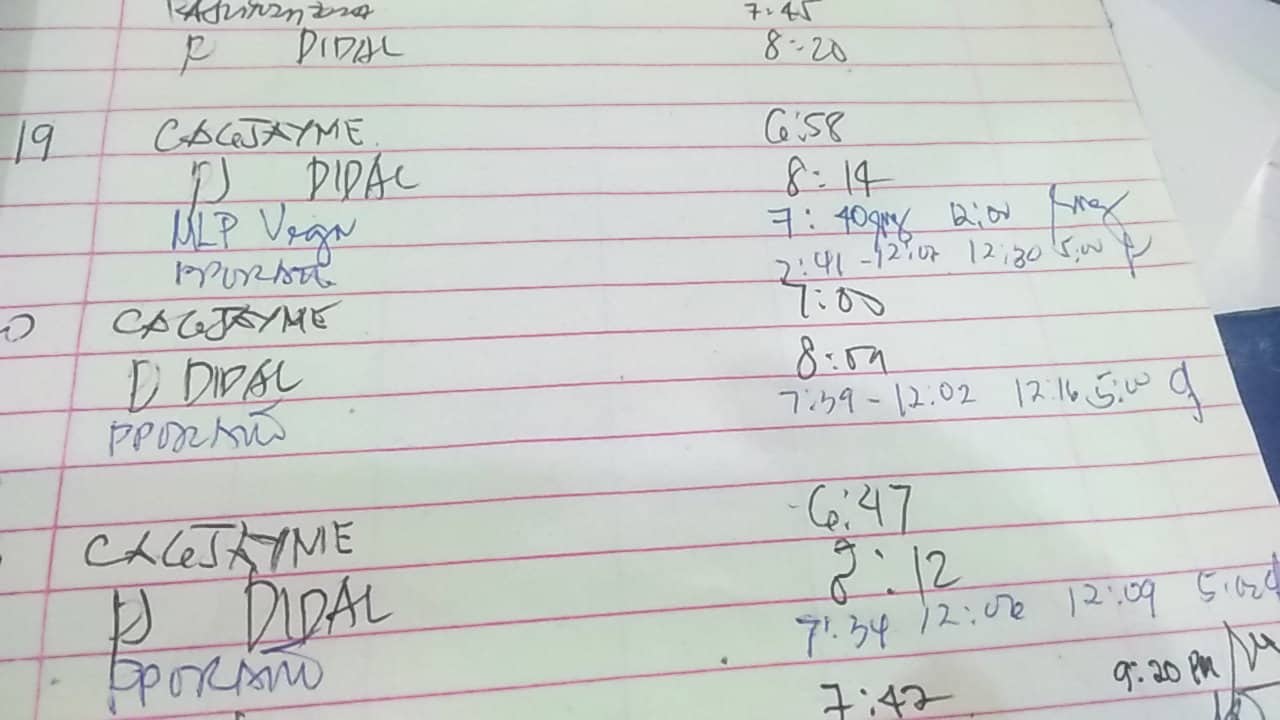 7:45
DIDAL 8:20
19 CAGJAYME 6:58
DIDAL 8:14
MLP Vega 7:40 12:00
PPORANO 7:41 - 12:02 12:30 5:00
CAGJAYME 7:00
D DIDAL 8:09
PPORANO 7:39 - 12:02 12:16 5:00
CAGJAYME 6:47
DIDAL 8:12
PPORANO 7:34 12:02 12:09 5:02
7:42 9:20 PM